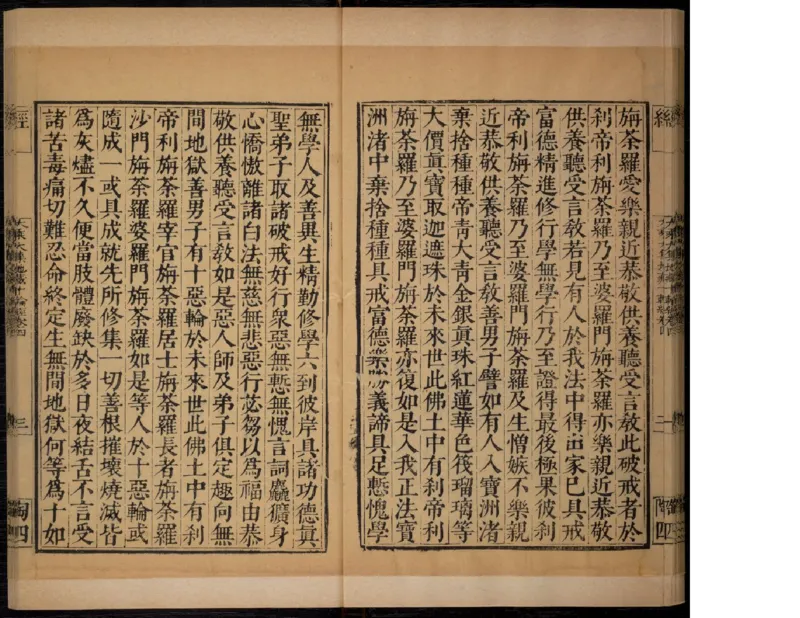 旃荼羅愛樂親近恭敬供養聽受言敎此破戒者於
刹帝利旃荼羅乃至婆羅門旃荼羅亦樂親近恭敬
供養聽受言敎若見有人於我法中得出家已具戒
富德精進修行學無學行乃至證得最後極果彼刹
帝利旃荼羅乃至婆羅門旃荼羅及生憎嫉不樂親
近恭敬供養聽受言敎善男子譬如有人入寶洲渚
棄捨種種帝靑大靑金銀眞珠紅蓮華色筏瑠璃等
大價眞寶取迦遮珠於未來世此佛土中有刹帝利
旃荼羅乃至婆羅門旃荼羅亦復如是入我正法寶
洲渚中棄捨種種具戒富德樂勝義諦具足慙愧學
無學人及善異生精勤修學六到彼岸具諸功德眞
聖弟子取諸破戒好行衆惡無慙無愧言詞麤獷身
心憍慠離諸白法無慈無悲惡行苾芻以爲福由恭
敬供養聽受言敎如是惡人師及弟子俱定趣向無
間地獄善男子有十惡輪於未來世此佛土中有刹
帝利旃荼羅宰官旃荼羅居士旃荼羅長者旃荼羅
沙門旃荼羅婆羅門旃荼羅如是等人於十惡輪或
隨成一或具成就先所修集一切善根摧壞燒滅皆
爲灰燼不久便當肢體廢缺於多日夜結舌不言受
諸苦毒痛切難忍命終定生無間地獄何等爲十如